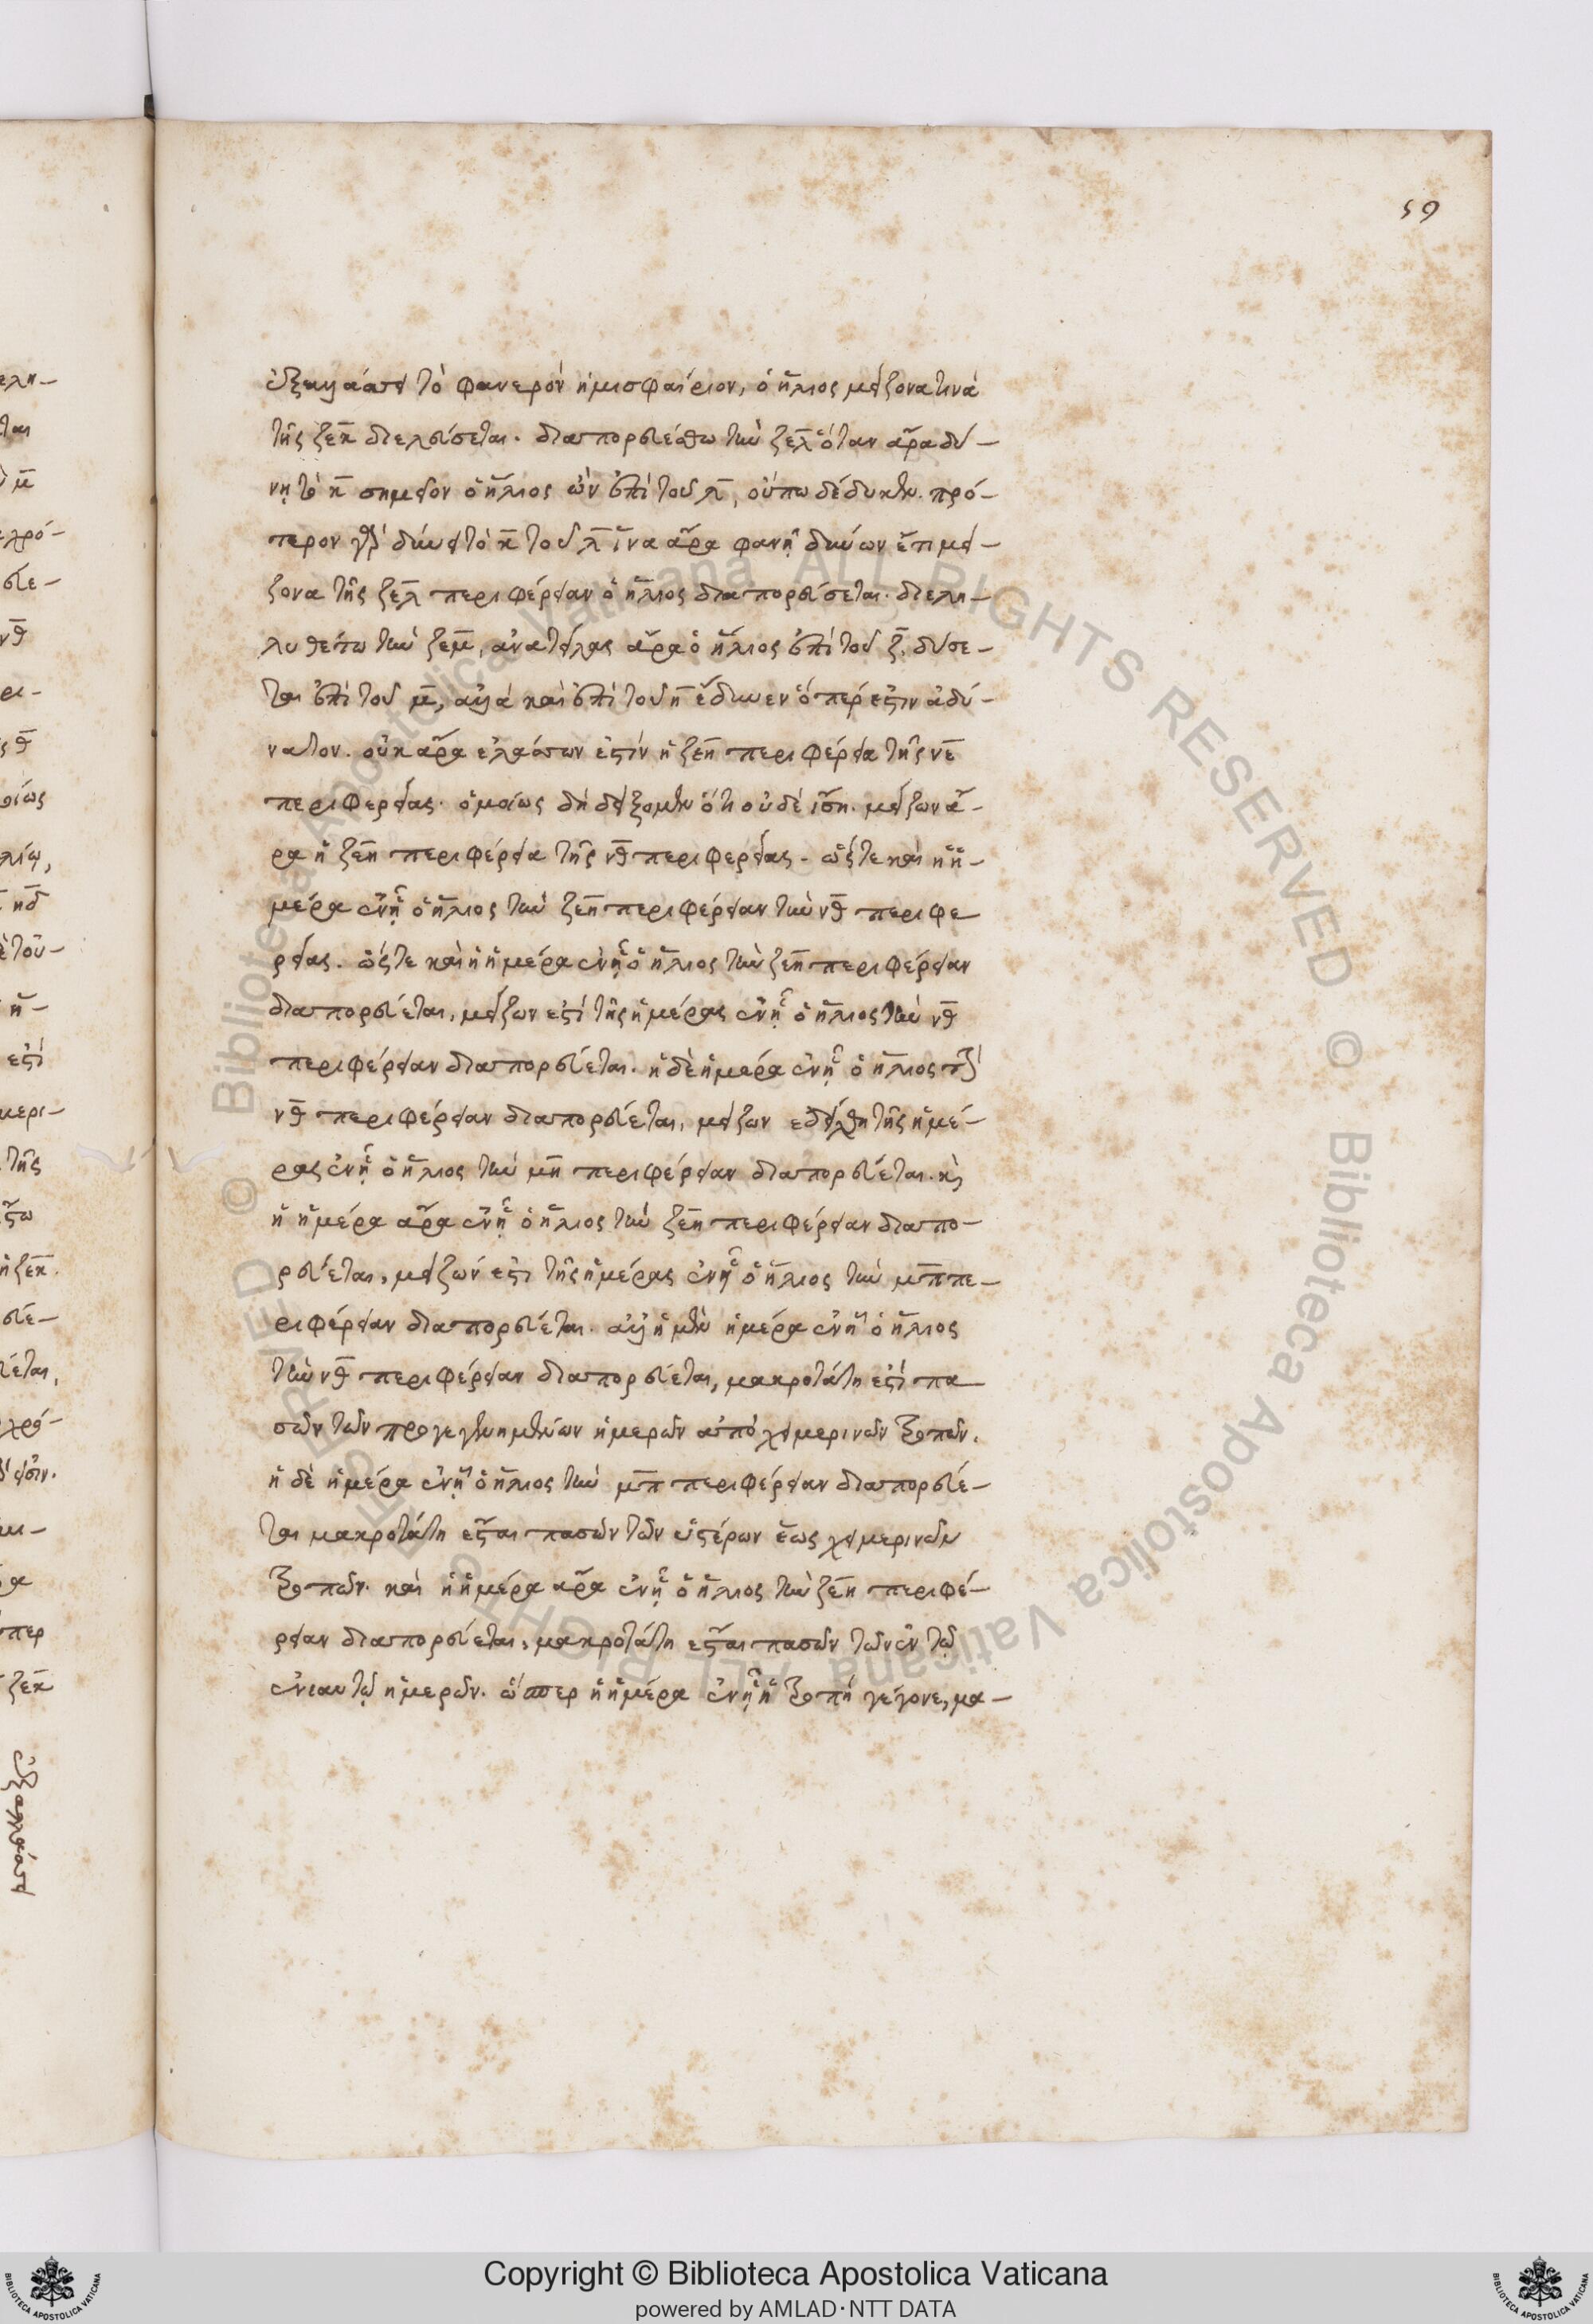 59
ἐξαλλάσσει τὸ φανερὸν ἡμισφαίριον, ὁ ἥλιος μείζονα τινὰ
τῆς ζε̅κ̅ διελεύσεται. διαπορευέσθω τὴν ζε̅λ̅ ὅταν ἄρα δύ-
νῃ τὸ κ̅ σημεῖον ὁ ἥλιος ὢν ἐπὶ τοῦ λ̅, οὔπω δέδυκεν. πρό-
τερον γὰρ δύνει τὸ κ̅ τοῦ λ̅ ἵνα ἄρα φανῇ δύνων ἔτι μεί-
ζονα τῆς ζε̅λ̅ περιφέρειαν ὁ ἥλιος διαπορεύσεται. διελη-
λυθέτω τὴν ζε̅μ̅, ἀνατείλας ἄρα ὁ ἥλιος ἐπὶ τοῦ ζ̅, δύσε-
ται ἐπὶ τοῦ μ̅, ἀλλὰ καὶ ἐπὶ τοῦ η̅ ἔδυνεν ὅπέρ ἐστιν ἀδύ-
νατον. οὐκ ἄρα ἐλάσσων ἐστὶν ἡ ζε̅η̅ περιφέρεια τῆς νε̅
περιφερείας. ὁμοίως δὴ δείξομεν ὅτι οὐδὲ ἴση. μείζων ἄ-
ρα ἡ ζε̅η̅ περιφέρεια τῆς νθ̅ περιφερείας. ὥστε καὶ ἡ ἡ-
μέρα ἐν ᾗ ὁ ἥλιος τὴν ζε̅η̅ περιφέρειαν τὴν νθ̅ περιφε
ρείας. ὥστε καὶ ἡ ἡμέρα ἐν ᾗ ὁ ἥλιος τὴν ζε̅η̅ περιφέρειαν
διαπορεύεται, μείζων ἐστὶ τῆς ἡμέρας ἐν ᾗ ὁ ἥλιος τὴν νθ̅
περιφέρειαν διαπορεύεται. ἡ δὲ ἡμέρα ἐν ᾗ ὁ ἥλιος τὴν
νθ̅ περιφέρειαν διαπορεύεται, μείζων ἐδείχθη τῆς ἡμέ-
ρας ἐν ᾗ ὁ ἥλιος τὴν μη̅ περιφέρειαν διαπορεύεται. καὶ
ἡ ἡμέρα ἄρα ἐν ᾗ ὁ ἥλιος τὴν ζε̅η̅ περιφέρειαν διαπο-
ρεύεται, μείζων ἐστὶ τῆς ἡμέρας ἐν ᾗ ὁ ἥλιος τὴν μπ̅ πε-
ριφέρειαν διαπορεύεται. ἀλλ' ἡ μὲν ἡμέρα ἐν ᾗ ὁ ἥλιος
τὴν νθ̅ περιφέρειαν διαπορεύεται, μακροτάτη ἐστὶ πα
σῶν τῶν προγεγενημένων ἡμερῶν ἀπὸ χειμερινῶν τροπῶν.
ἡ δὲ ἡμέρα ἐν ᾗ ὁ ἥλιος τὴν μπ̅ περιφέρειαν διαπορεύε-
ται μακροτάτη ἔσται πασῶν τῶν ὑστέρων ἕως χειμερινῶν
τροπῶν. καὶ ἡ ἡμέρα ἄρα ἐν ᾗ ὁ ἥλιος τὴν ζε̅η̅ περιφέ-
ρειαν διαπορεύεται, μακροτάτη ἔσται πασῶν τῶν ἐν τῷ
ἐνιαυτῷ ἡμερῶν. ὥσπερ ἡ ἡμέρα ἐν ᾗ ἡ τροπὴ γέγονε, μα-
ἐξαλλάσσει
Copyright © Biblioteca Apostolica Vaticana
powered by AMLAD·NTT DATA